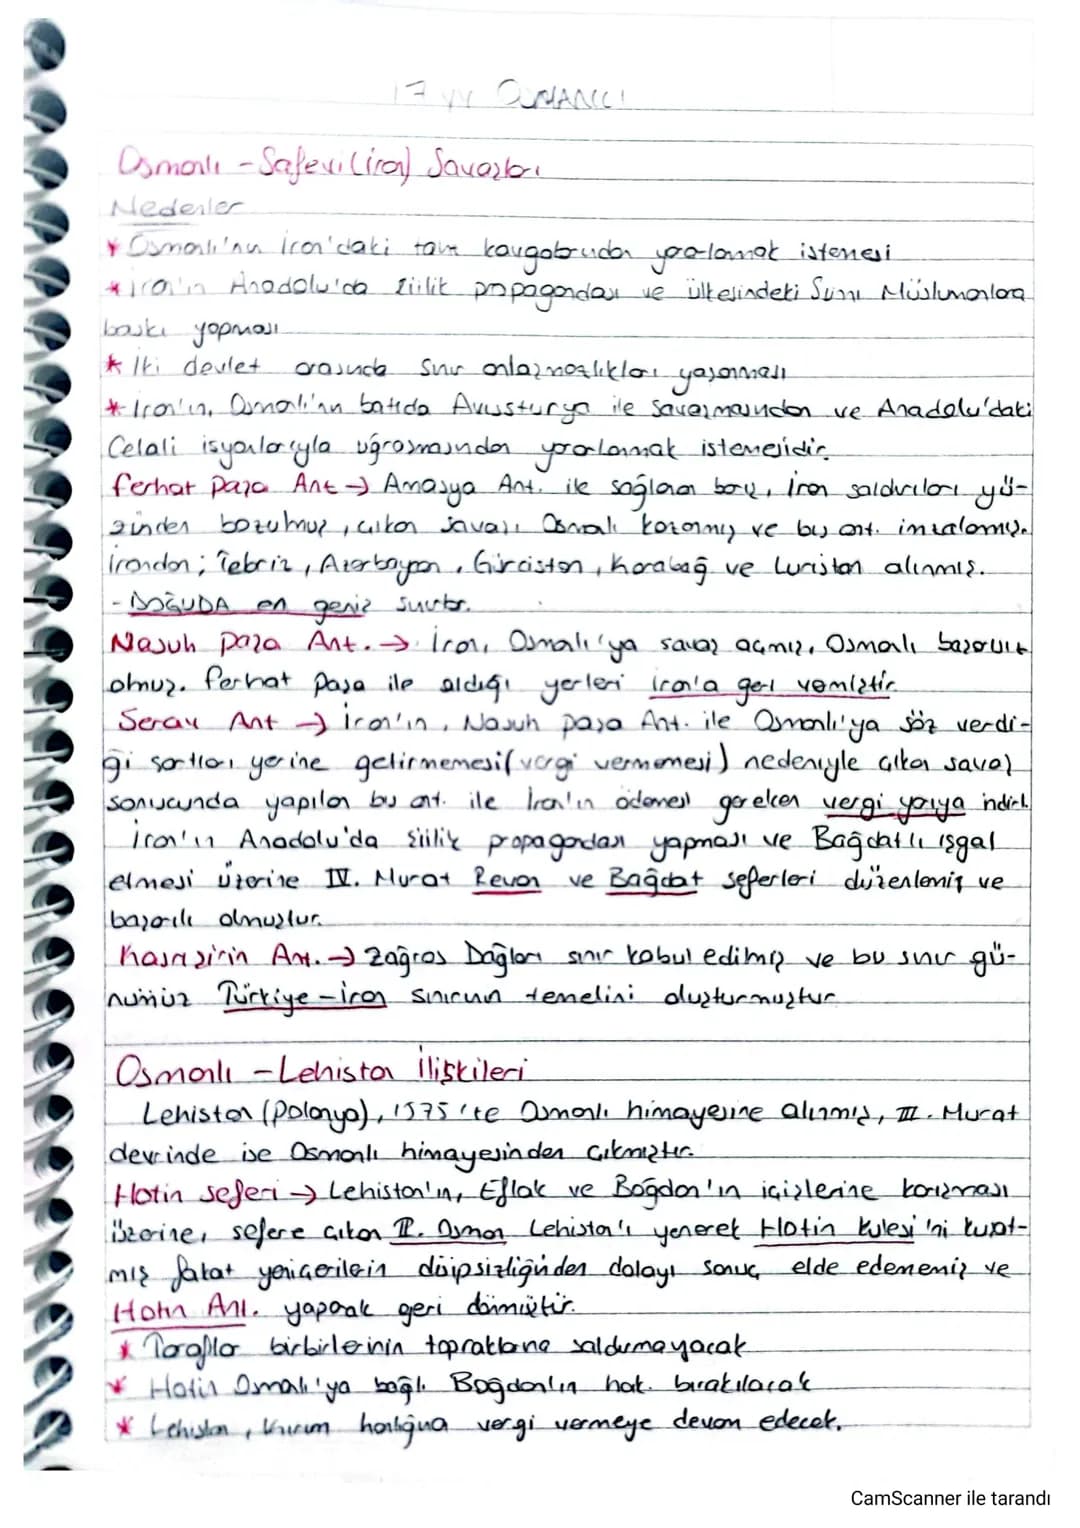 17 yy OSMANLI
Osmanlı - Safevi (iran) Savaşları
Nedenler
* Osmanlı'nın İran'daki taht kavgalarından yararlanmak istemesi
* iran'ın Anadolu'da Şiilik propagandası ve ülkesindeki Sunni Müslümanlara
baskı yapması
* İki devlet arasında sınır anlaşmazlıkları yaşanması
* İran'ın, Osmanlı'nın batıda Avusturya ile savaşmasından ve Anadolu'daki
Celali isyanlarıyla uğraşmasından yararlanmak istemesidir.
Ferhat paşa Ant → Amasya Ant. ile sağlanan barış, İran saldırıları yü-
zünden bozulmuş, çıkan savaşı Osmanlı kazanmış ve bu ant. imzalamış.
İrandan; Tebriz, Azerbaycan, Gürcistan, Karabağ ve Luristan alınmış.
- DOĞUDA en geniş sınırlar.
Nasuh paşa Ant. → İran, Osmanlı'ya savaş açmış, Osmanlı başarısız
olmuş. Ferhat paşa ile aldığı yerleri İran'a geri vermiştir
Serav Ant → İran'ın, Nasuh paşa Ant. ile Osmanlı'ya söz verdi-
ği şartları yerine getirmemesi (vergi vermemesi) nedeniyle çıkan savaş
sonucunda yapılan bu ant. ile İran'ın ödemesi gereken vergi yarıya indirl.
İran'ın Anadolu'da Şiilik propagandası yapması ve Bağdat'ı işgal
etmesi üzerine IV. Murat Revan ve Bağdat seferleri düzenlemiş ve
başarılı olmuştur.
Kasrışirin Ant. → Zağros Dağları sınır kabul edilmiş ve bu sınır gü-
nümüz Türkiye - İran sınırının temelini oluşturmuştur
Osmanlı - Lehistan İlişkileri
Lehistan (Polonya), 1575'te Osmanlı himayesine alınmış, III. Murat
devrinde ise Osmanlı himayesinden çıkmıştır.
Hotin seferi → Lehistan'ın, Eflak ve Boğdan'ın içişlerine karışması
üzerine, sefere çıkan II. Osman Lehistan'ı yenerek Hotin kulesi'ni kuşat-
mış fakat yeniçerilerin disiplinsizliğinden dolayı sonuç elde edememiş ve
Hotin Ant. yaparak geri dönmüştür.
* Taraflar birbirlerinin topraklarına saldırmayacak
* Hotin Osmanlı'ya bağlı Boğdan'ın hak. bırakılacak
* Lehistan, Kırım hanlığına vergi vermeye devam edecek.
CamScanner ile tarandı